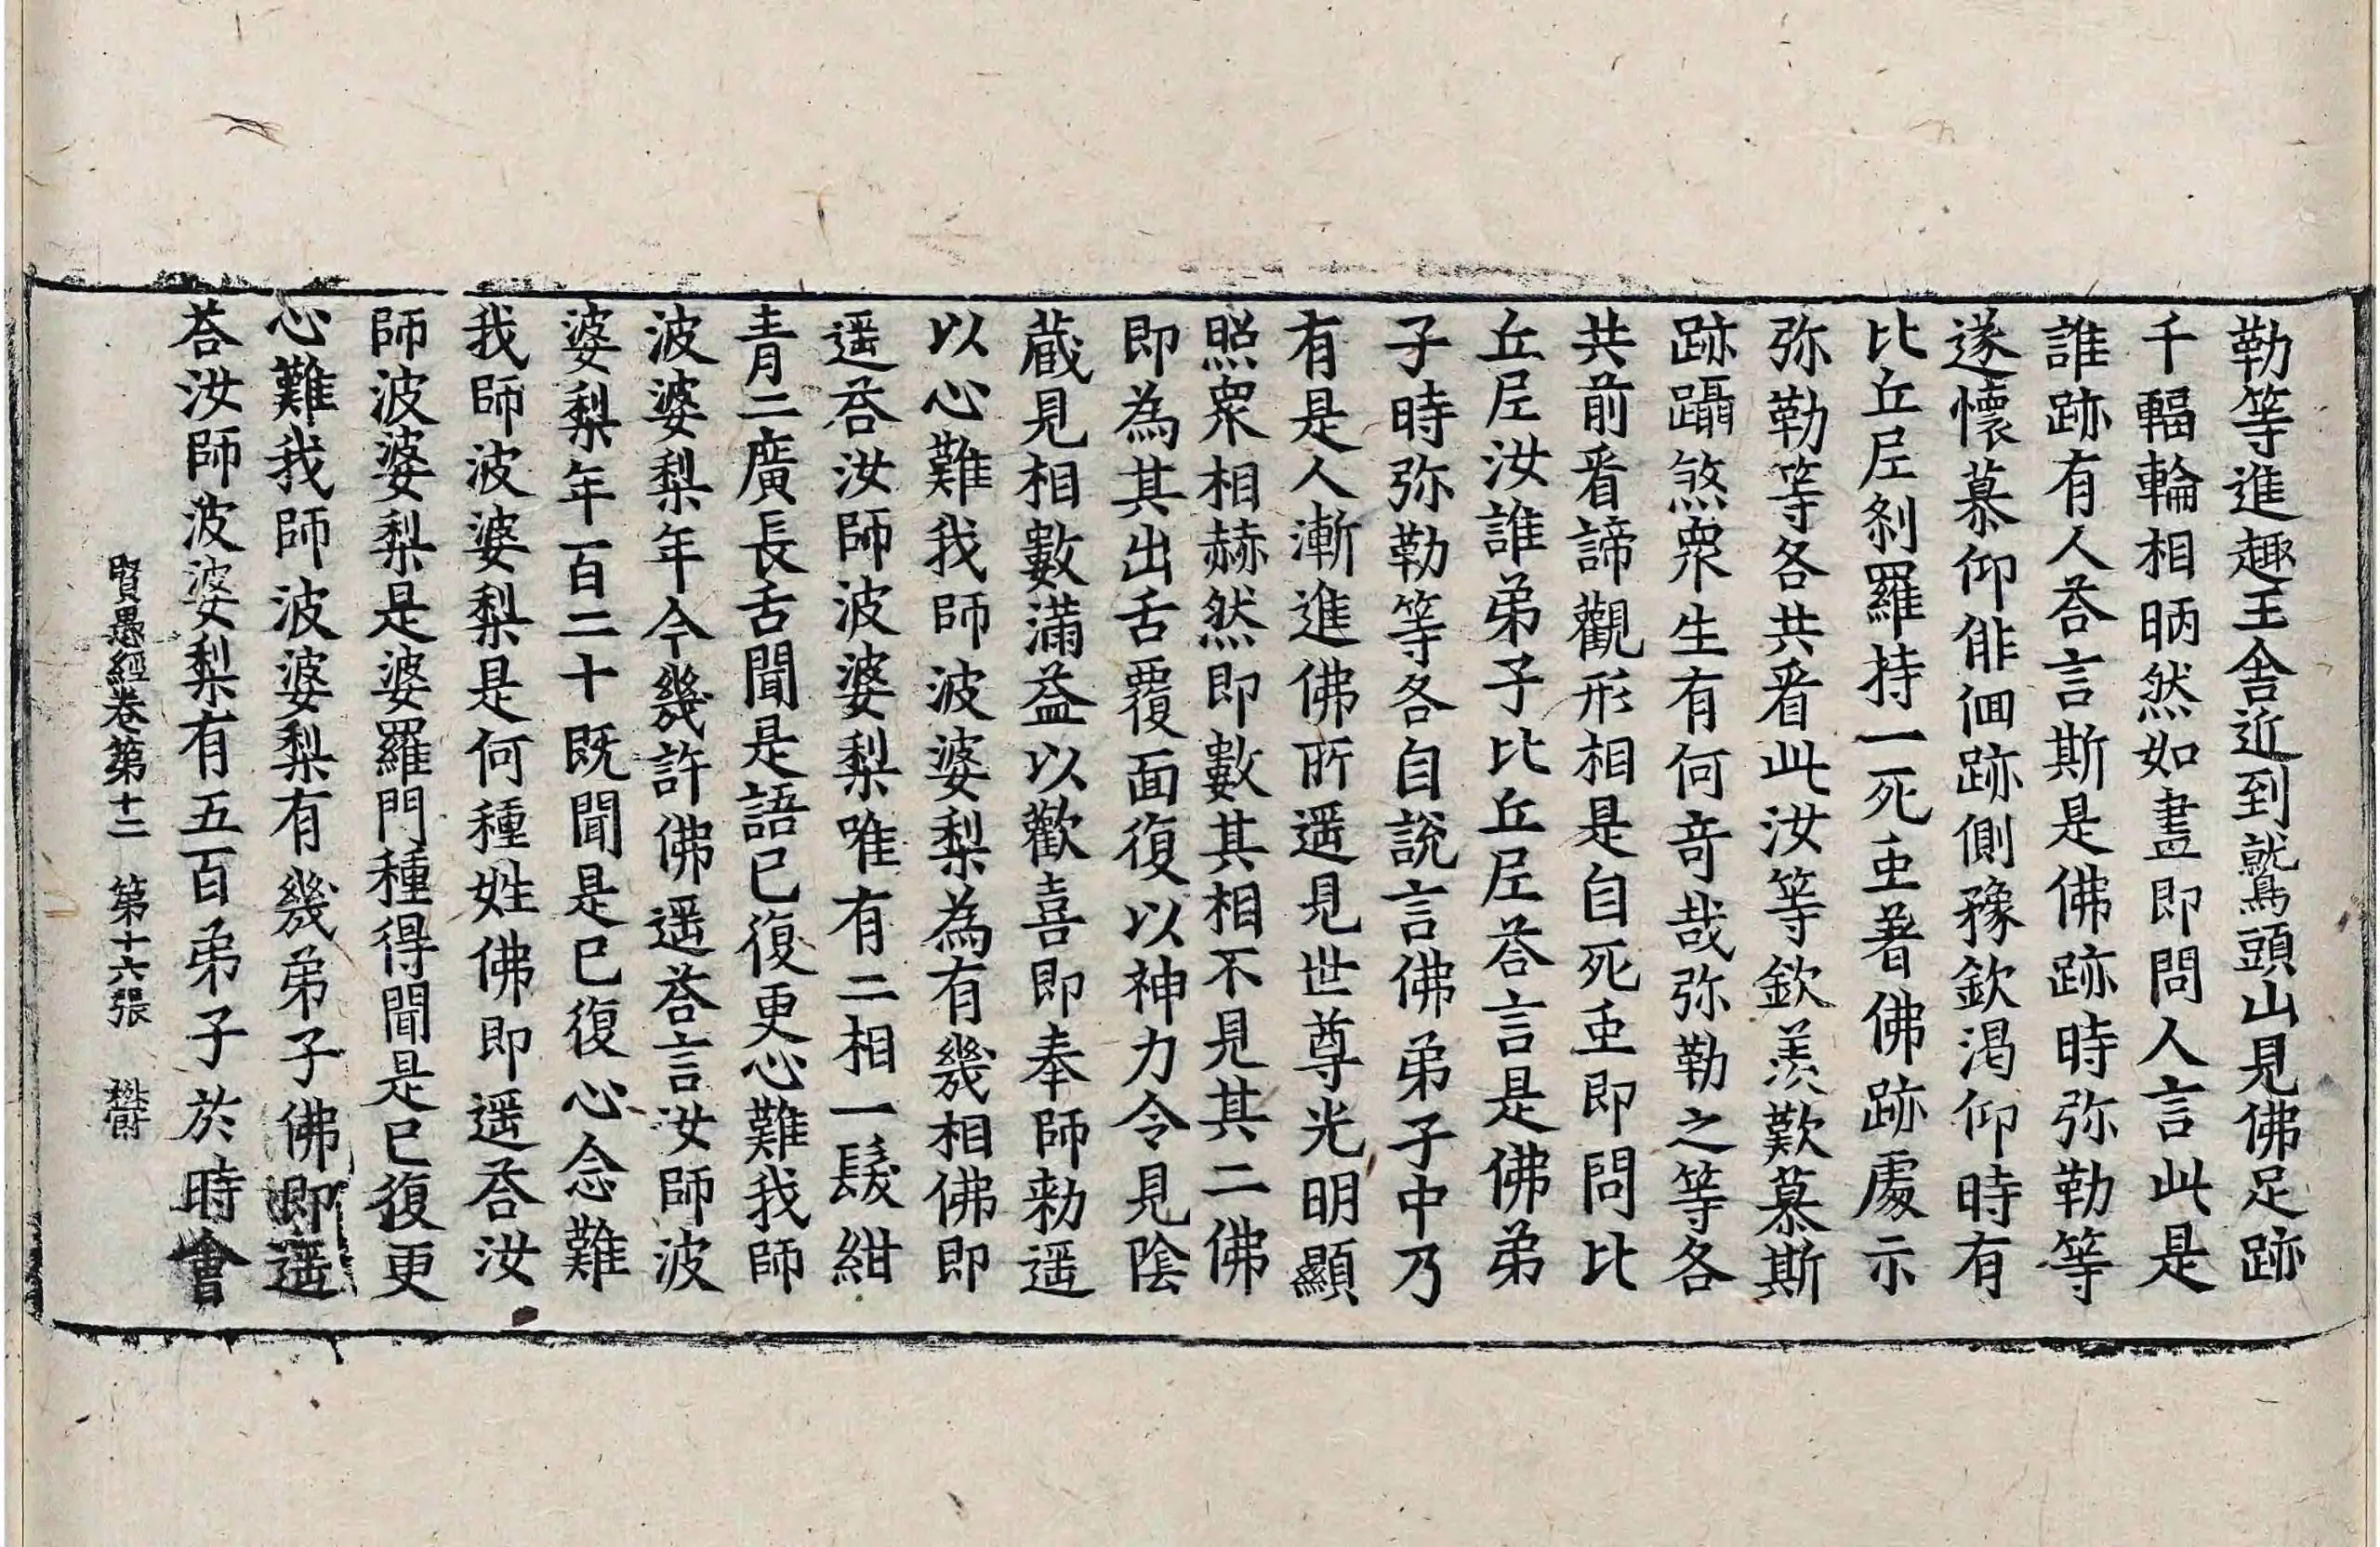 勒等進趣王舎近到鷲頭山見佛足跡
千輻輪相昞然如畫即問人言此是
誰跡有人荅言斯是佛跡時弥勒等
遂懷慕仰俳佪跡側豫欽渇仰時有
比丘尼剎羅持一死虫著佛跡處示
弥勒等各共看此汝等欽羨歎慕斯
跡躡煞衆生有何竒哉弥勒之等各
共前看諦觀形相是自死虫即問比
丘尼汝誰弟子比丘尼荅言是佛弟
子時弥勒等各自說言佛弟子中乃
有是人漸進佛所遥見世尊光明顯
照衆相赫然即數其相不見其二佛
即為其出舌覆面復以神力令見陰
蔵見相數滿益以歡喜即奉師勑遥
以心難我師波婆梨為有幾相佛即
遥荅汝師波婆梨唯有二相一髮紺
青二廣長舌聞是語已復更心難我師
波婆梨年今幾許佛遥荅言汝師波
婆梨年一百二十既聞是已復心念難
我師波婆梨是何種姓佛即遥荅汝
師波婆梨是婆羅門種得聞是已復更
心難我師波婆梨有幾弟子佛即遥
荅汝師波婆梨有五百弟子於時會
賢愚經卷第十二 第十六張 欝